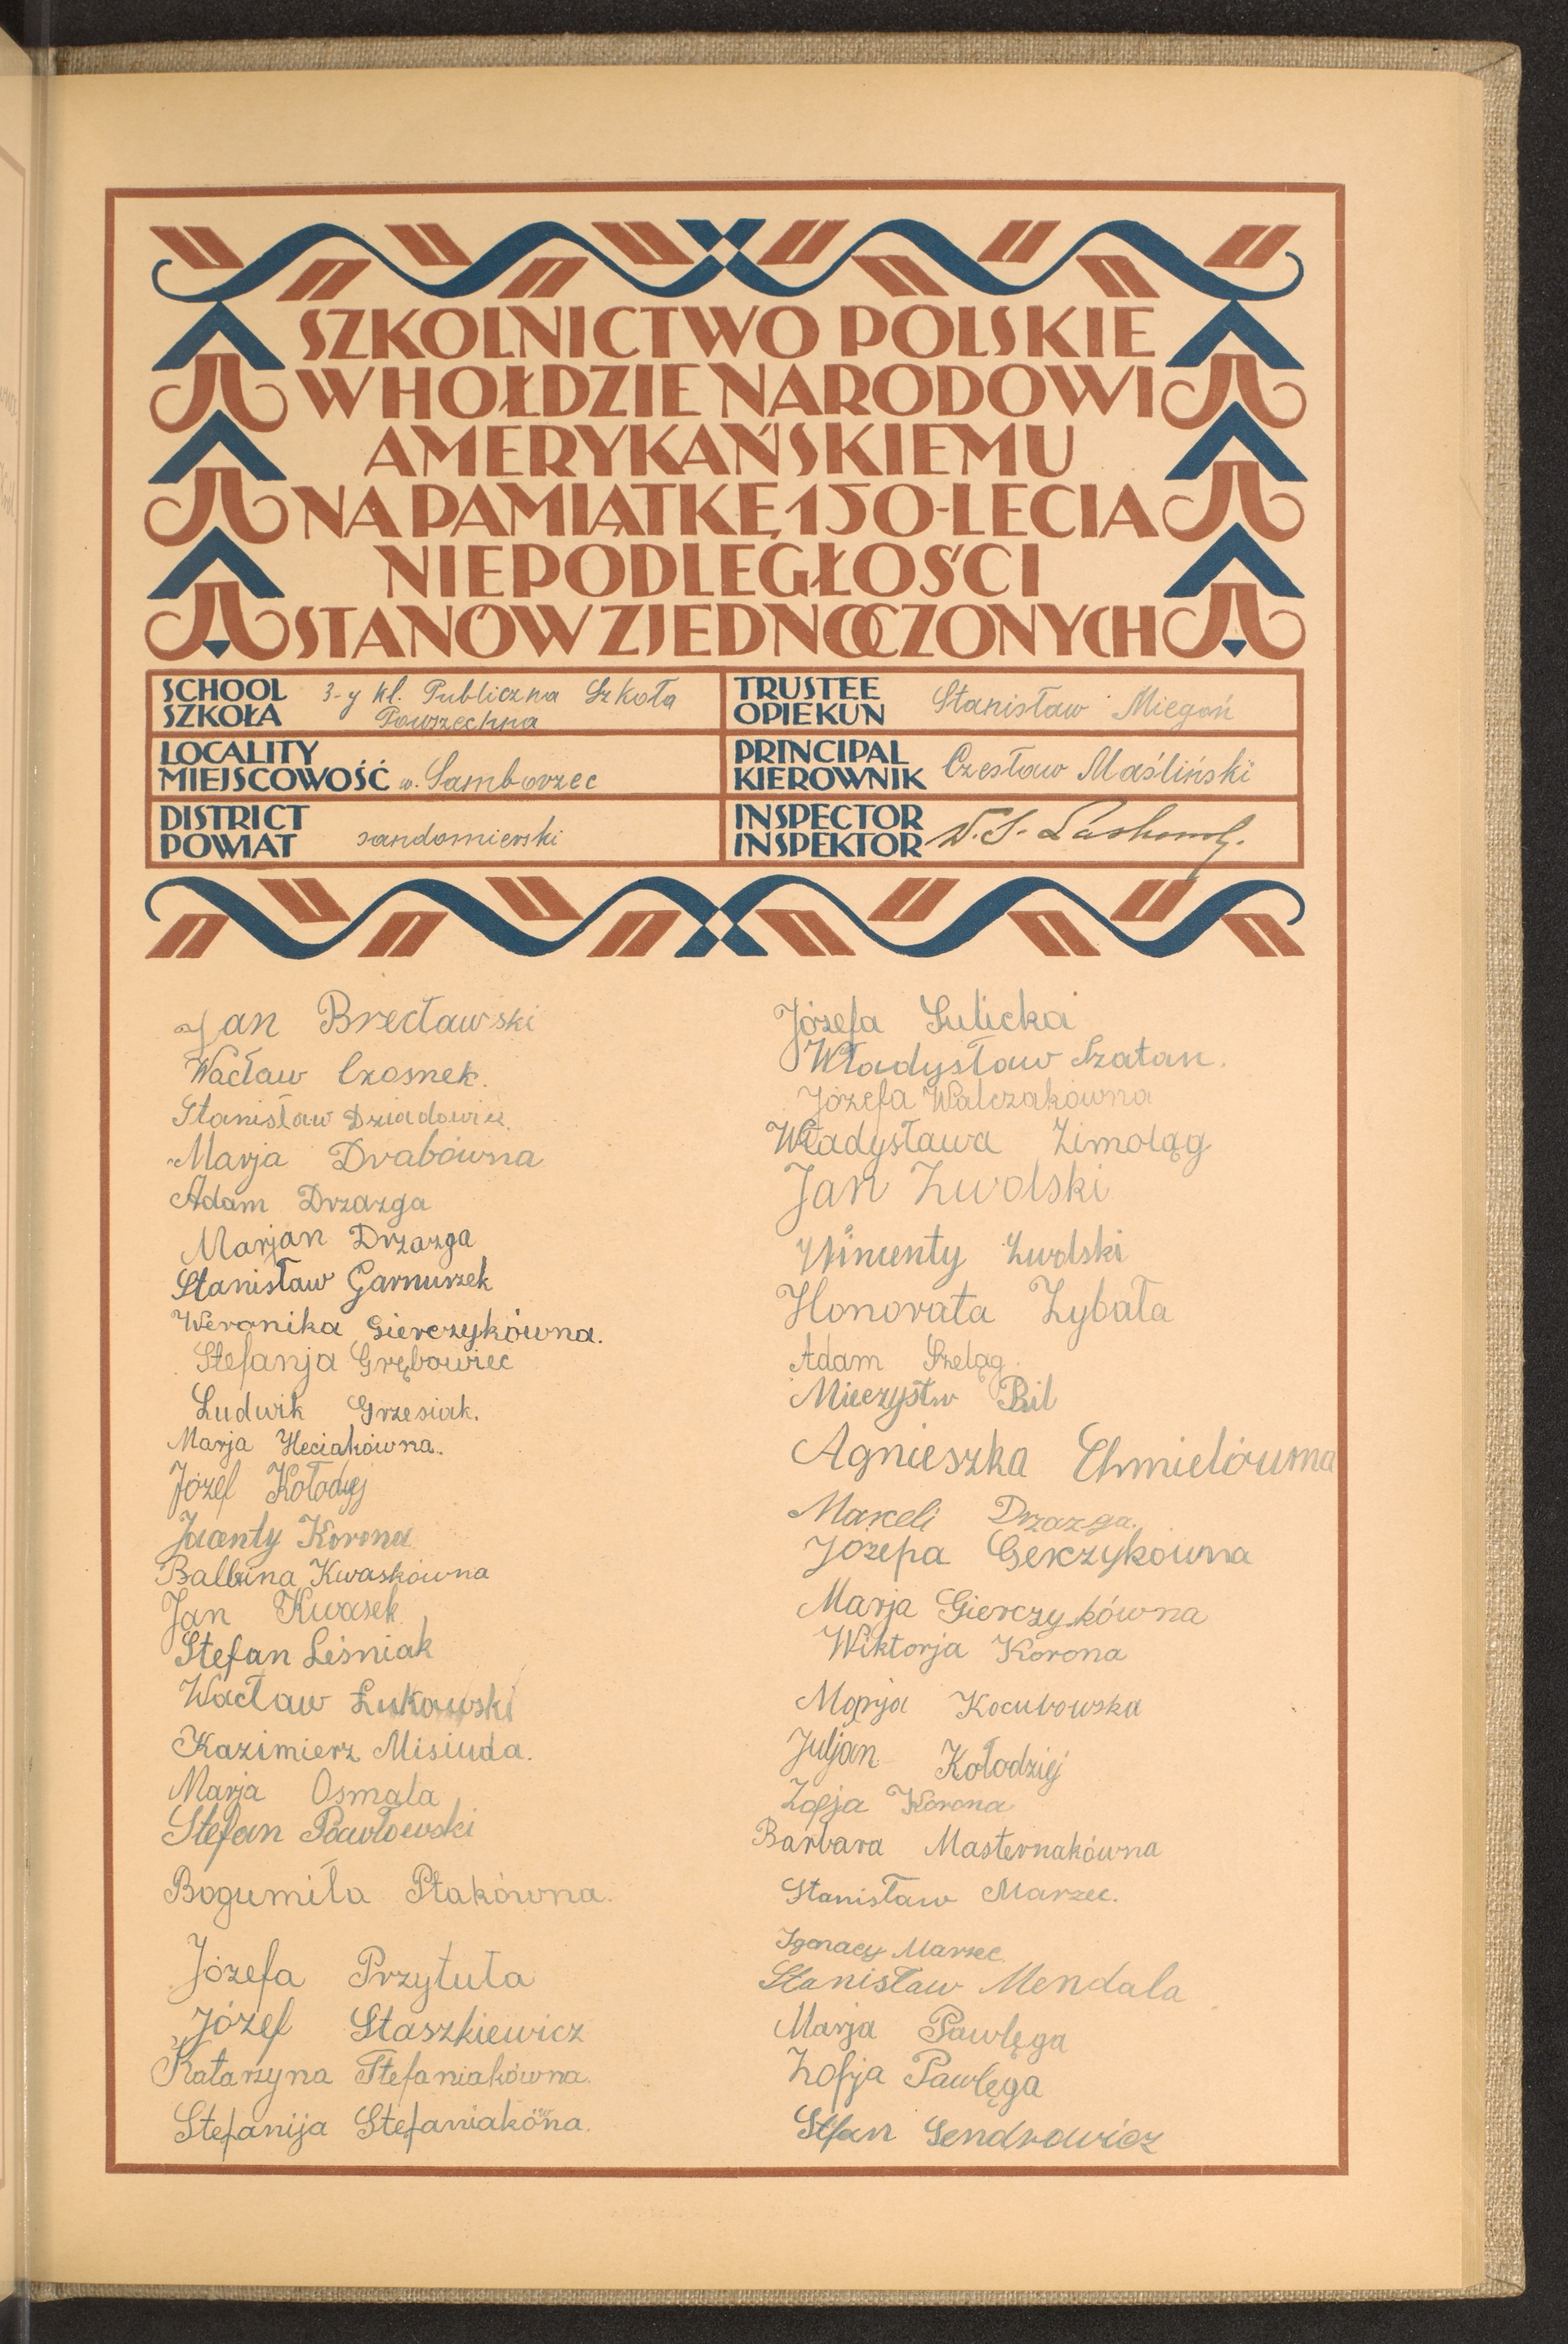 SZKOLNICTWO POLSKIE
W HOŁDZIE NARODOWI
AMERYKAŃSKIEMU
NA PAMIĄTKĘ 150-LECIA
NIEPODLEGŁOŚCI
STANÓW ZJEDNOCZONYCH
SCHOOL
SZKOŁA
3-y kl. Publiczna Szkoła
Powszechna
TRUSTEE
OPIEKUN
Stanisław Miegoń
LOCALITY
MIEJSCOWOŚĆ
w. Samborzec
PRINCIPAL
KIEROWNIK
Czesław Maśliński
DISTRICT
POWIAT
sandomierski
INSPECTOR
INSPEKTOR
Jan Brecławski
Wacław Czosnek.
Stanisław
Marja Drabówna
Adam Drzazga
Marjan Drzazga
Stanisław Garnuszek
Weronika Gierczykówna.
Stefanja Grębowiec
Ludwik Grzesiak.
Marja Heciakówna.
Józef Kołodziej
Jacenty Korona
Balbina Kwaskówna
Jan Kwasek
Stefan Leśniak
Wacław Łukawski
Kazimierz Misiuda.
Marja Osmala
Stefan Pawłowski
Bogumiła Ptakówna.
Józefa Przytuła
Józef Staszkiewicz
Katarzyna Stefaniakówna.
Stefanija Stefaniakówna.
Józefa Sulicka
Władysław Szatan.
Józefa Walczakówna
Władysława Zimoląg
Jan Zwolski
Wincenty Zwolski
Honorata Zybała
Adam Szeląg.
Mieczysłw Bil
Agnieszka Chmielówna
Marceli Drzazga.
Józefa Gerczykówna
Marja Gierczykówna
Wiktorja Korona
Marja
Juljan Kołodziej
Zofja Korona
Barbara Masternakówna
Stanisław Marzec.
Ignacy Marzec
Stanisław Mendala
Marja Pawlęga
Zofja Pawlęga
Stefan Sendrowicz